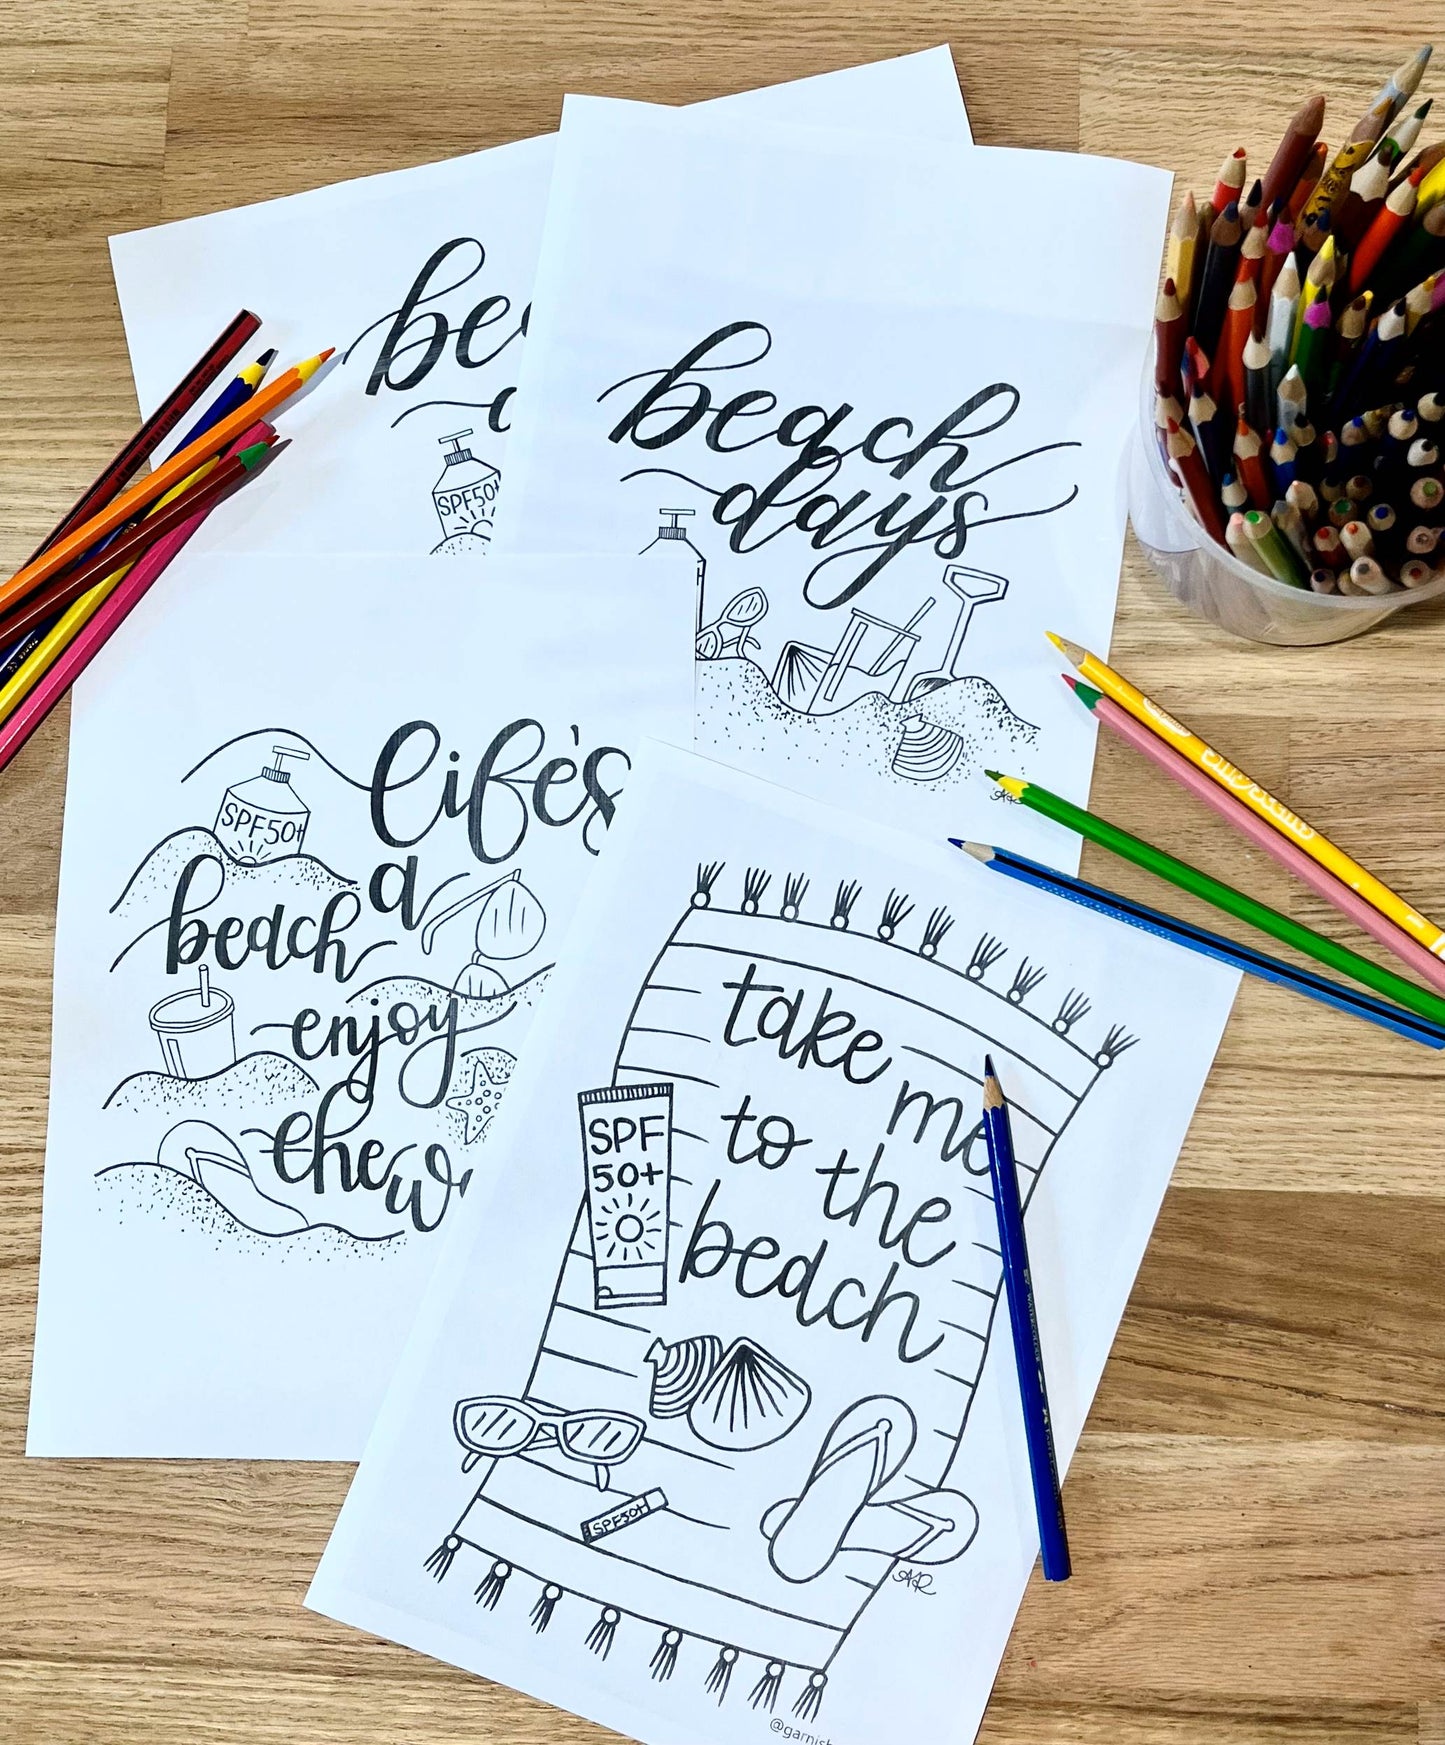 be
SPF50+
beach
days
life's
SPF50+
a
beach
enjoy
the w
take me
to the
beach
SPF
50+
SPF50+
AR